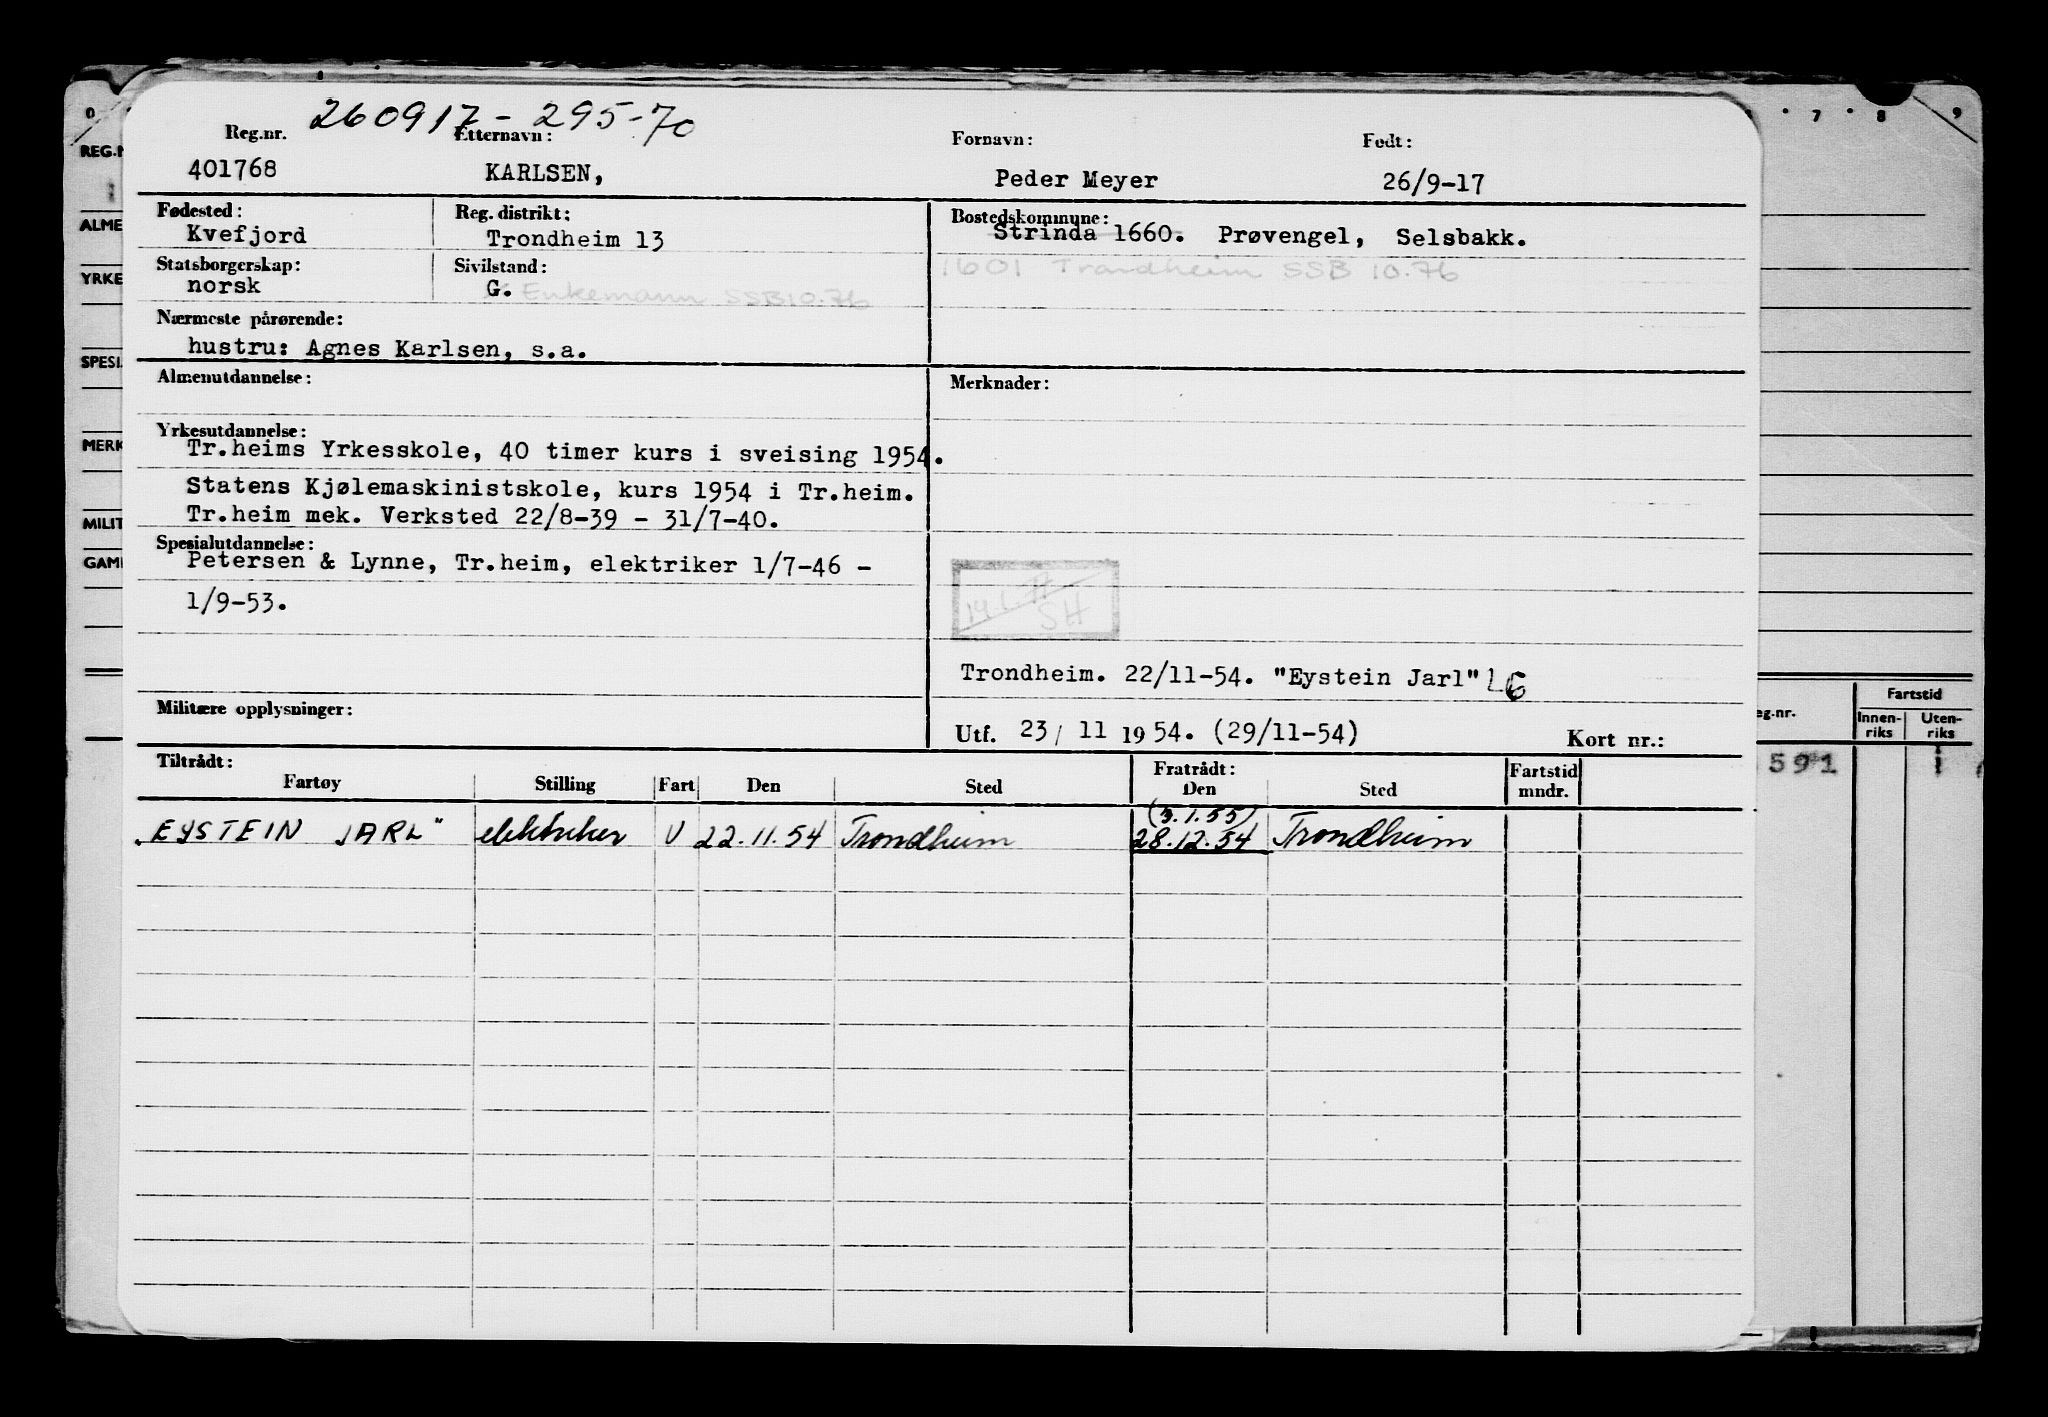 260917-295-70
Reg.nr. Etternavn: Fornavn: Født:
401768 KARLSEN, Peder Meyer 26/9-17
Fødested: Reg. distrikt: Bostedskommune:
Kvefjord Trondheim 13 Strinda 1660. Prøvengel, Selsbakk.
Statsborgerskap: Sivilstand: 1601 Trondheim SSB 10.76
norsk G. Enkemann SSB 10.76
Nærmeste pårørende:
hustru: Agnes Karlsen, s.a.
Almenutdannelse: Merknader:
Yrkesutdannelse:
Tr.heims Yrkesskole, 40 timer kurs i sveising 1954.
Statens Kjølemaskinistskole, kurs 1954 i Tr.heim.
Tr.heim mek. Verksted 22/8-39 - 31/7-40.
Spesialutdannelse:
Petersen & Lynne, Tr.heim, elektriker 1/7-46 -
1/9-53.
SH
Trondheim. 22/11-54. "Eystein Jarl"
Militære opplysninger:
Utf. 23/ 11 1954. (29/11-54) Kort nr.:
Tiltrådt: Fratrådt:
Fartøy Stilling Fart Den Sted Den Sted Fartstid mndr.
(3.1.55)
"EYSTEIN JARL" elektriker U 22.11.54 Trondheim 28.12.54 Trondheim
0 7 8 9
REG.N
ALME
YRKE
SPESI
MERK
MILIT
GAM
Fartstid
eg.nr. Innen-riks Uten-riks
591 1